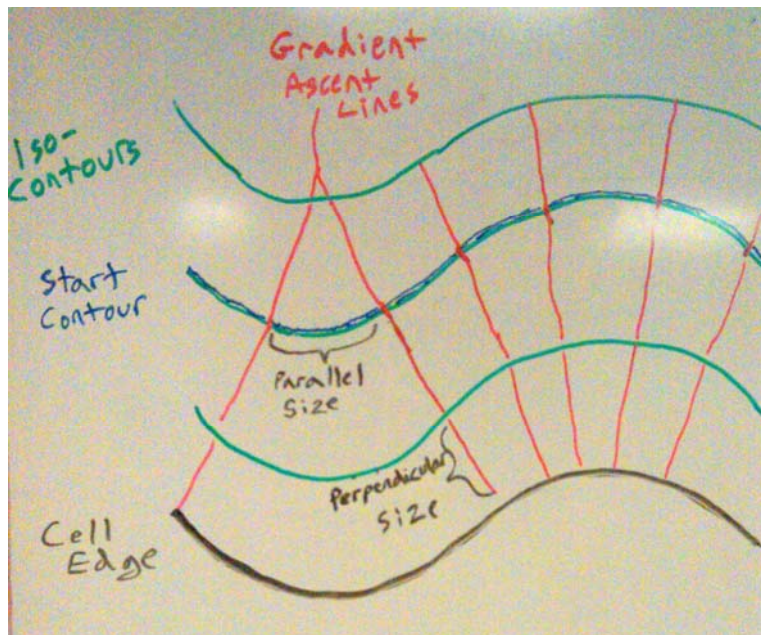 Gradient
Ascent
Lines
Iso-
Contours
Start
Contour
Parallel
Size
Perpendicular
Size
Cell
Edge